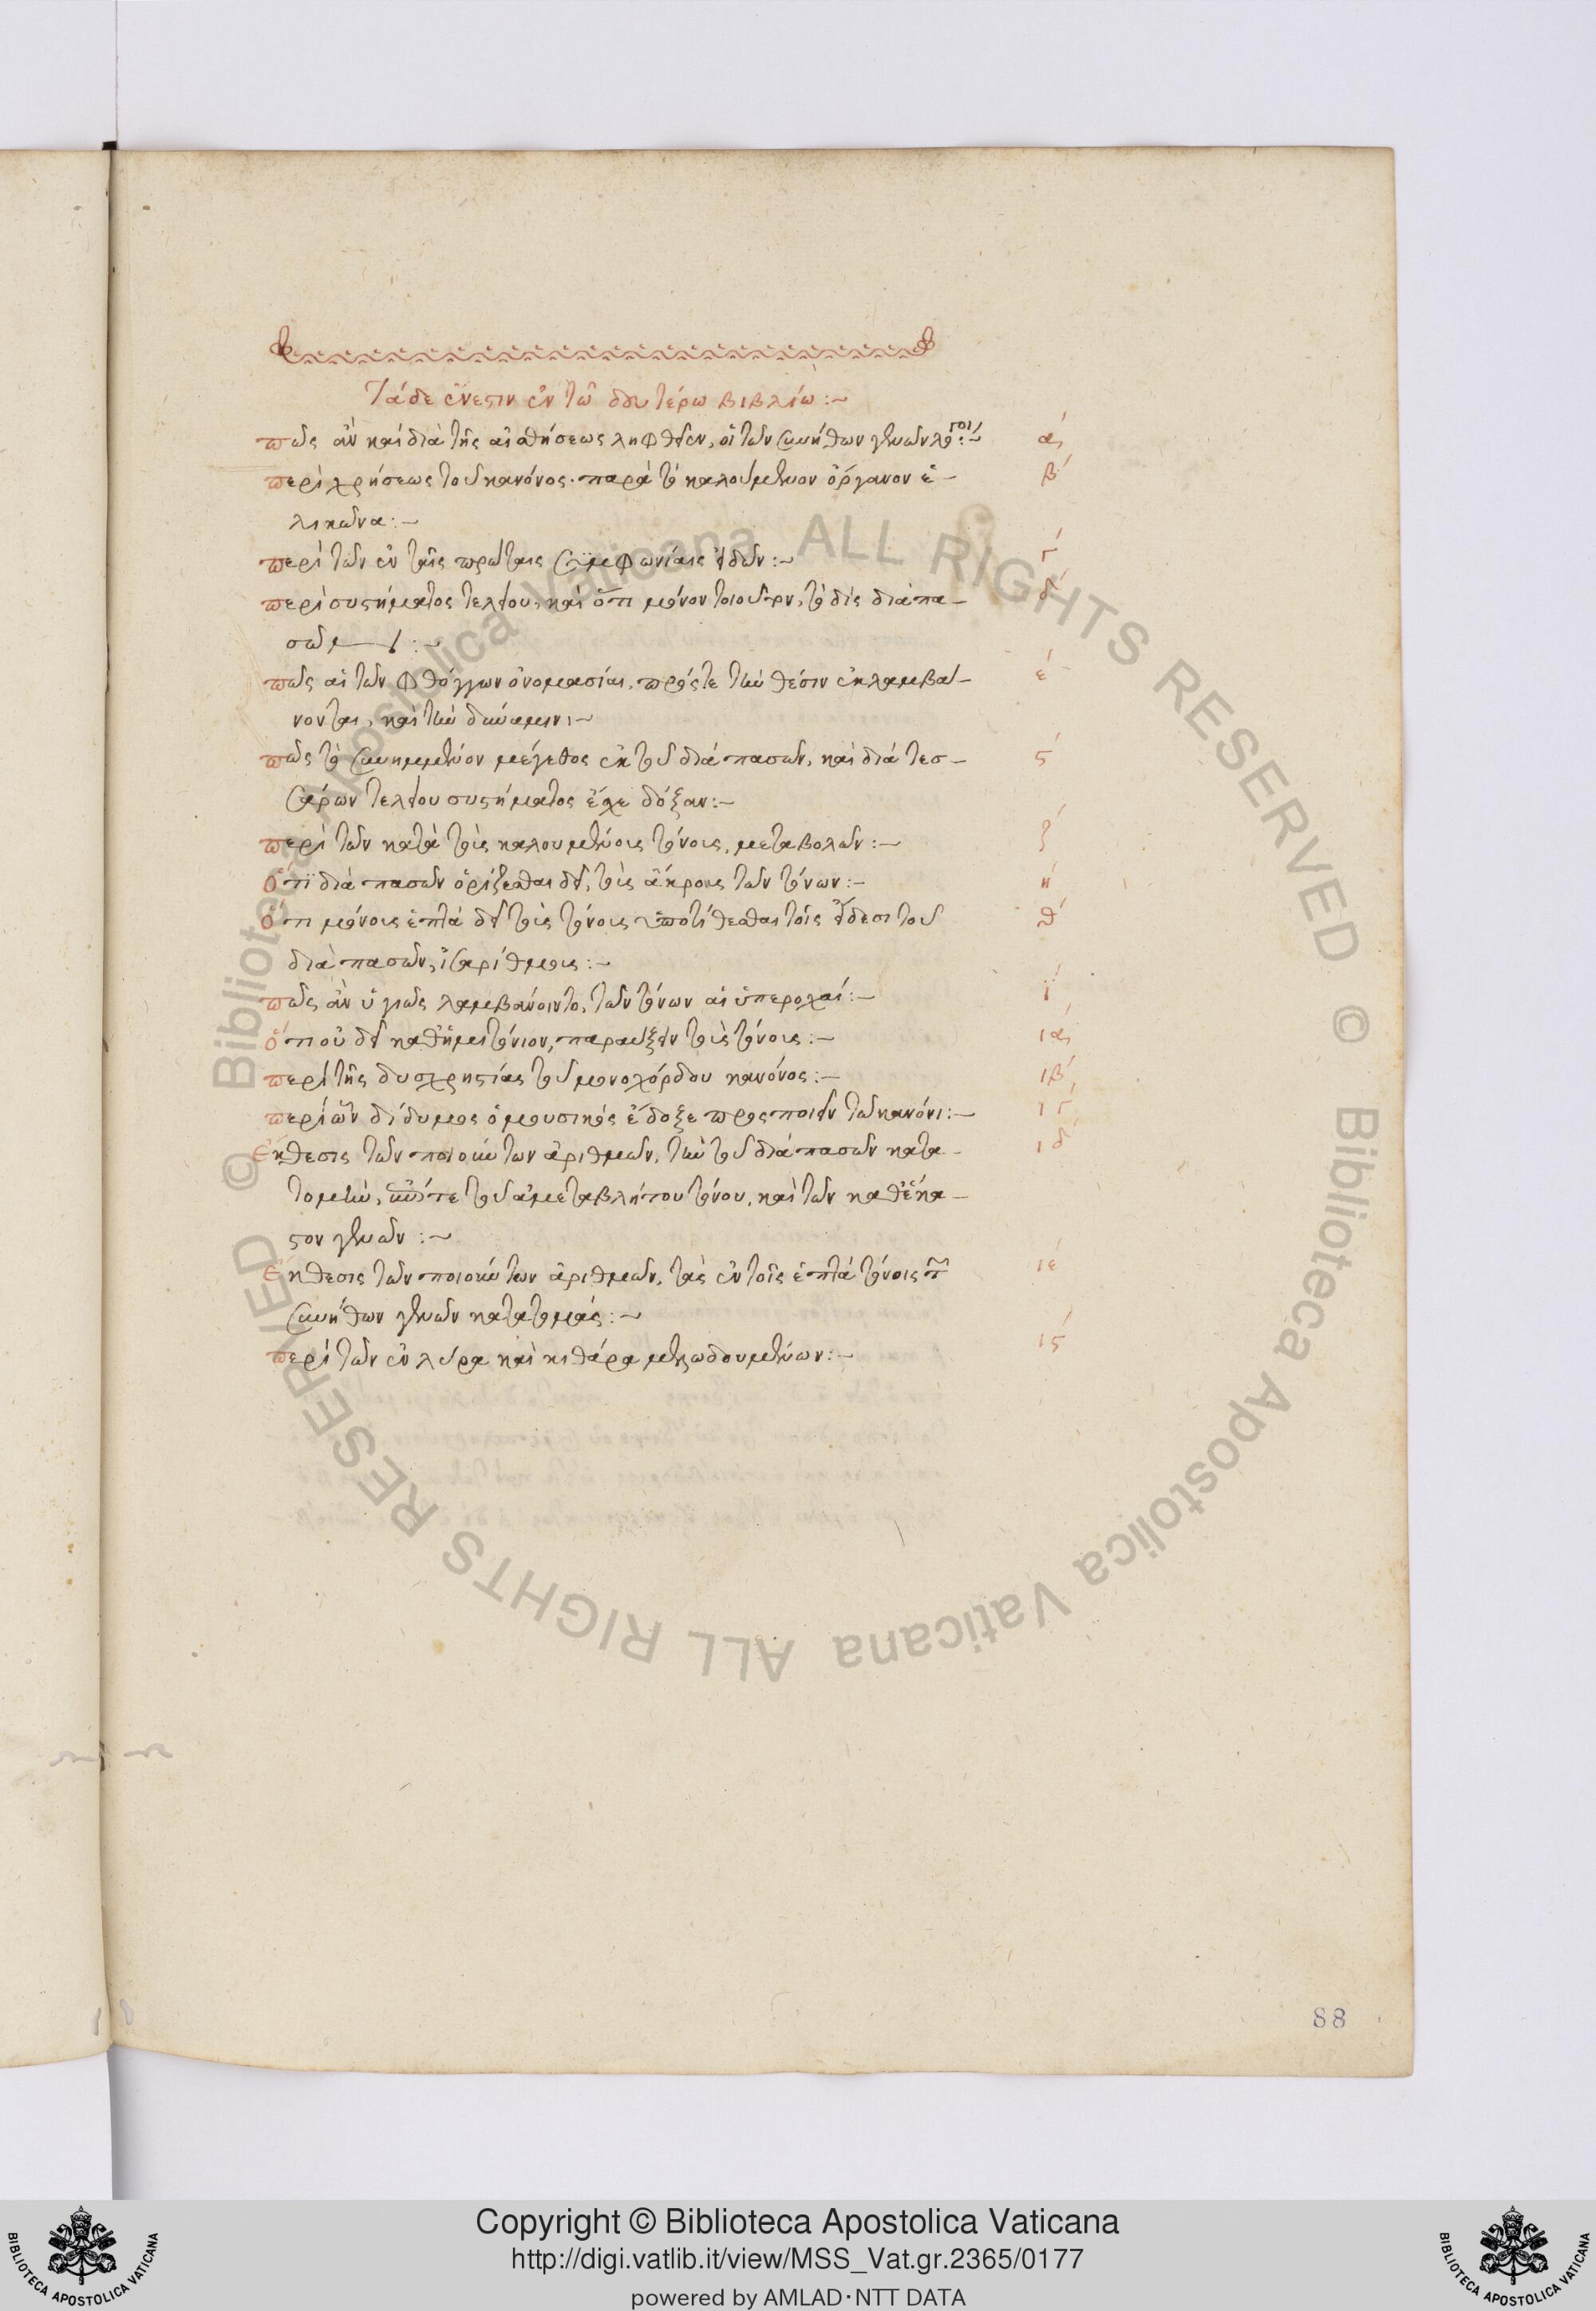 Τάδε ἔνεστιν ἐν τῶ δευτέρω βιβλίω:~
πῶς ἂν καὶ διὰ τῆς αἰσθήσεως ληφθεῖεν, οἱ τῶν συνήθων γενῶν λόγοι:~ α΄
περὶ χρήσεως τοῦ κανόνος· παρὰ τὸ καλούμενον ὄργανον ἑ- β΄
λικῶνα:~
περὶ τῶν ἐν ταῖς πρώταις συμφωνίαις εἰδῶν:~ γ΄
περὶ συστήματος τελείου, καὶ ὅτι μόνον τοιοῦτον, τὸ δὶς διαπα- δ΄
σῶν:~
πῶς αἱ τῶν φθόγγων ὀνομασίαι, πρός τε τὴν θέσιν ἐκλαμβά- ε΄
νονται, καὶ τὴν δύναμιν:~
πῶς τὸ συνημμένον μέγεθος ἐκ τοῦ διὰ πασῶν, καὶ διὰ τεσ- ϛ΄
σάρων τελείου συστήματος ἔχε δόξαν:~
περὶ τῶν κατὰ τοὺς καλουμένους τόνους, μεταβολῶν:~ ζ΄
ὅτι διὰ πασῶν ὁρίζεσθαι δεῖ, τοὺς ἄκρους τῶν τόνων:~ η΄
ὅτι μόνους ἑπτὰ δεῖ τοὺς τόνους ὑποτίθεσθαι τοῖς εἴδεσι τοῦ θ΄
διὰ πασῶν, ἰσαρίθμους:~
πῶς ἂν ὑγιῶς λαμβάνοιντο, τῶν τόνων αἱ ὑπεροχαί:~ ι΄
ὅτι οὐ δεῖ καθ' ἡμιτόνιον, παραύξειν τοὺς τόνους:~ ια΄
περὶ τῆς δυσχρηστίας τοῦ μονοχόρδου κανόνος:~ ιβ΄
περὶ ὧν δίδυμος ὁ μουσικὸς ἔδοξε προσποιεῖν τῶ κανόνι:~ ιγ΄
ἔκθεσις τῶν ποιούντων ἀριθμῶν, τὴν τοῦ διὰ πασῶν κατα- ιδ΄
τομὴν, τοῦ ἀμεταβλήτου τόνου, καὶ τῶν καθ' ἕκα-
στον γενῶν:~
ἔκθεσις τῶν ποιούντων ἀριθμῶν, τὰς ἐν τοῖς ἑπτὰ τόνοις τῶν ιε΄
συνήθων γενῶν κατατομάς:~
περὶ τῶν ἐν λύρα καὶ κιθάρα μελωδουμένων:~ ιϛ΄
88
© Biblioteca Apostolica Vaticana ALL RIGHTS RESERVED © Biblioteca Apostolica Vaticana ALL RIGHTS RESERVED
BIBLIOTECA APOSTOLICA VATICANA
Copyright © Biblioteca Apostolica Vaticana
http://digi.vatlib.it/view/MSS_Vat.gr.2365/0177
powered by AMLAD·NTT DATA
BIBLIOTECA APOSTOLICA VATICANA